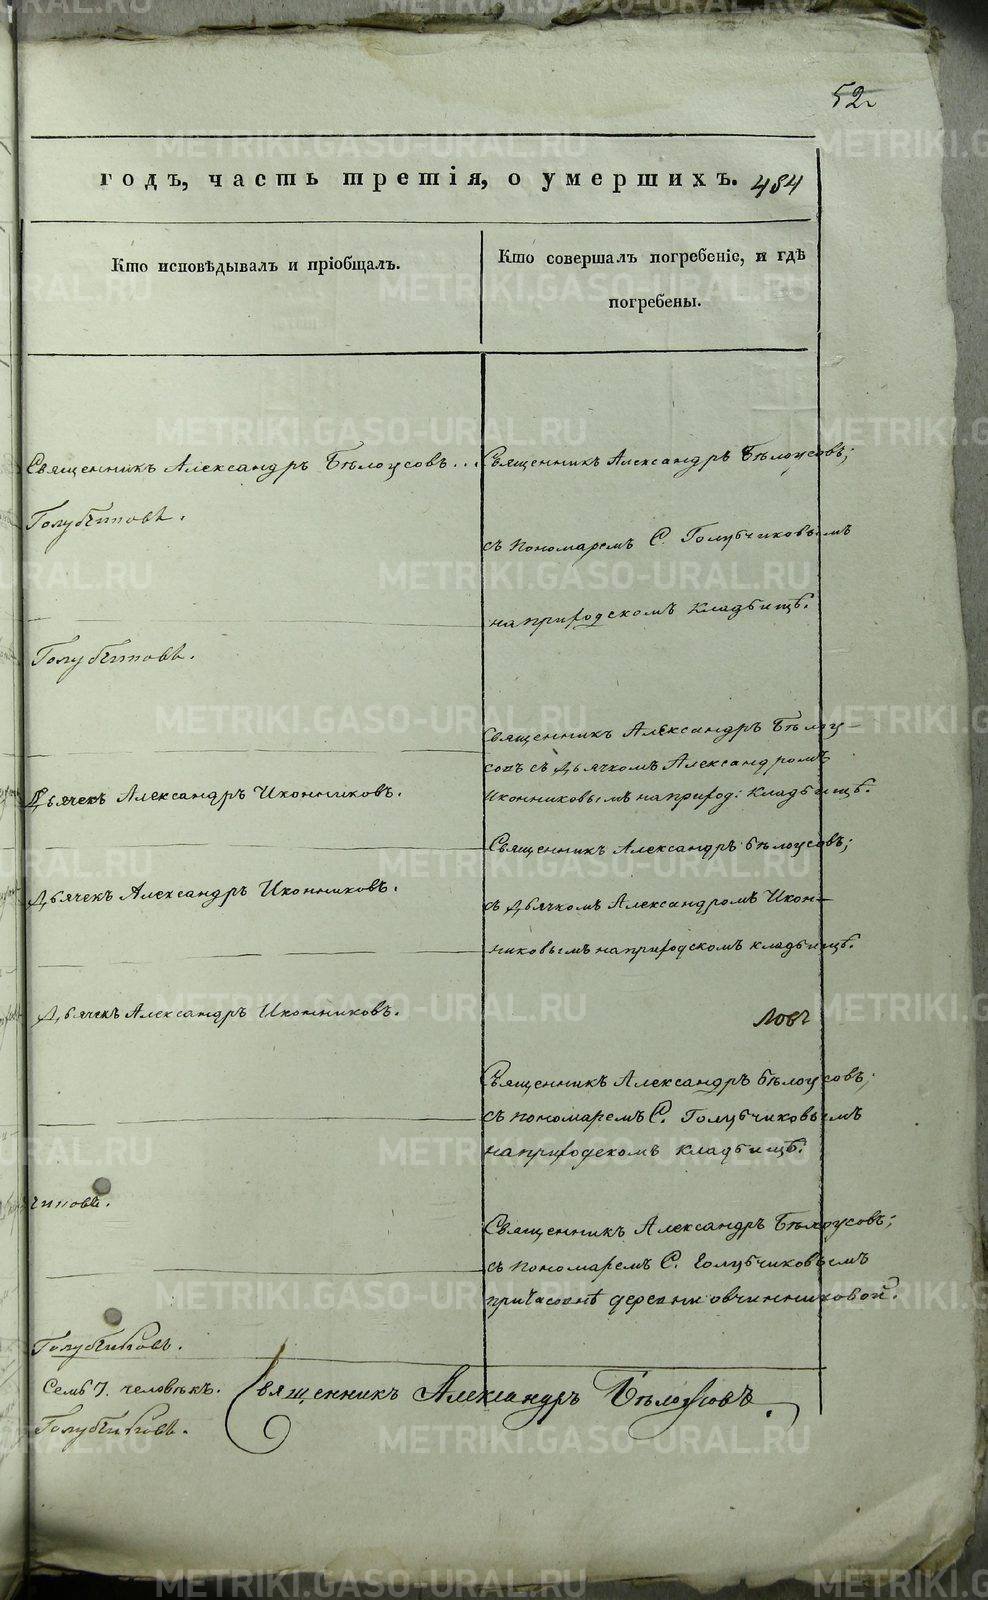 52
годъ, часть третія, о умершихъ. 484
Кто исповѣдывалъ и пріобщалъ.
Кто совершалъ погребеніе, и гдѣ
погребены.
Священникъ Александръ Бѣлоусовъ...
Голубчиковъ.
Голубчиковъ.
Дьячекъ Александръ Иконниковъ.
Дьячекъ Александръ Иконниковъ.
Дьячекъ Александръ Иконниковъ.
чиковъ.
Голубчиковъ.
Семь 7. человѣкъ.
Голубчиковъ.
Священникъ Александръ Бѣлоусовъ;
съ пономаремъ С. Голубчиковымъ
на природскомъ кладбищѣ.
Священникъ Александръ Бѣлоу-
совъ съ дьячкомъ Александромъ
Иконниковымъ на природ: кладбищѣ.
Священникъ Александръ Бѣлоусовъ;
съ дьячкомъ Александромъ Икон-
никовымъ на природскомъ кладбищѣ.
ловъ
Священникъ Александръ Бѣлоусовъ;
съ пономаремъ С. Голубчиковымъ
на природскомъ кладбищѣ.
Священникъ Александръ Бѣлоусовъ;
съ пономаремъ С. Голубчиковымъ
при часовнѣ деревни овчинниковой.
Священникъ Александръ Бѣлоусовъ.
METRIKI.GASO-URAL.RU